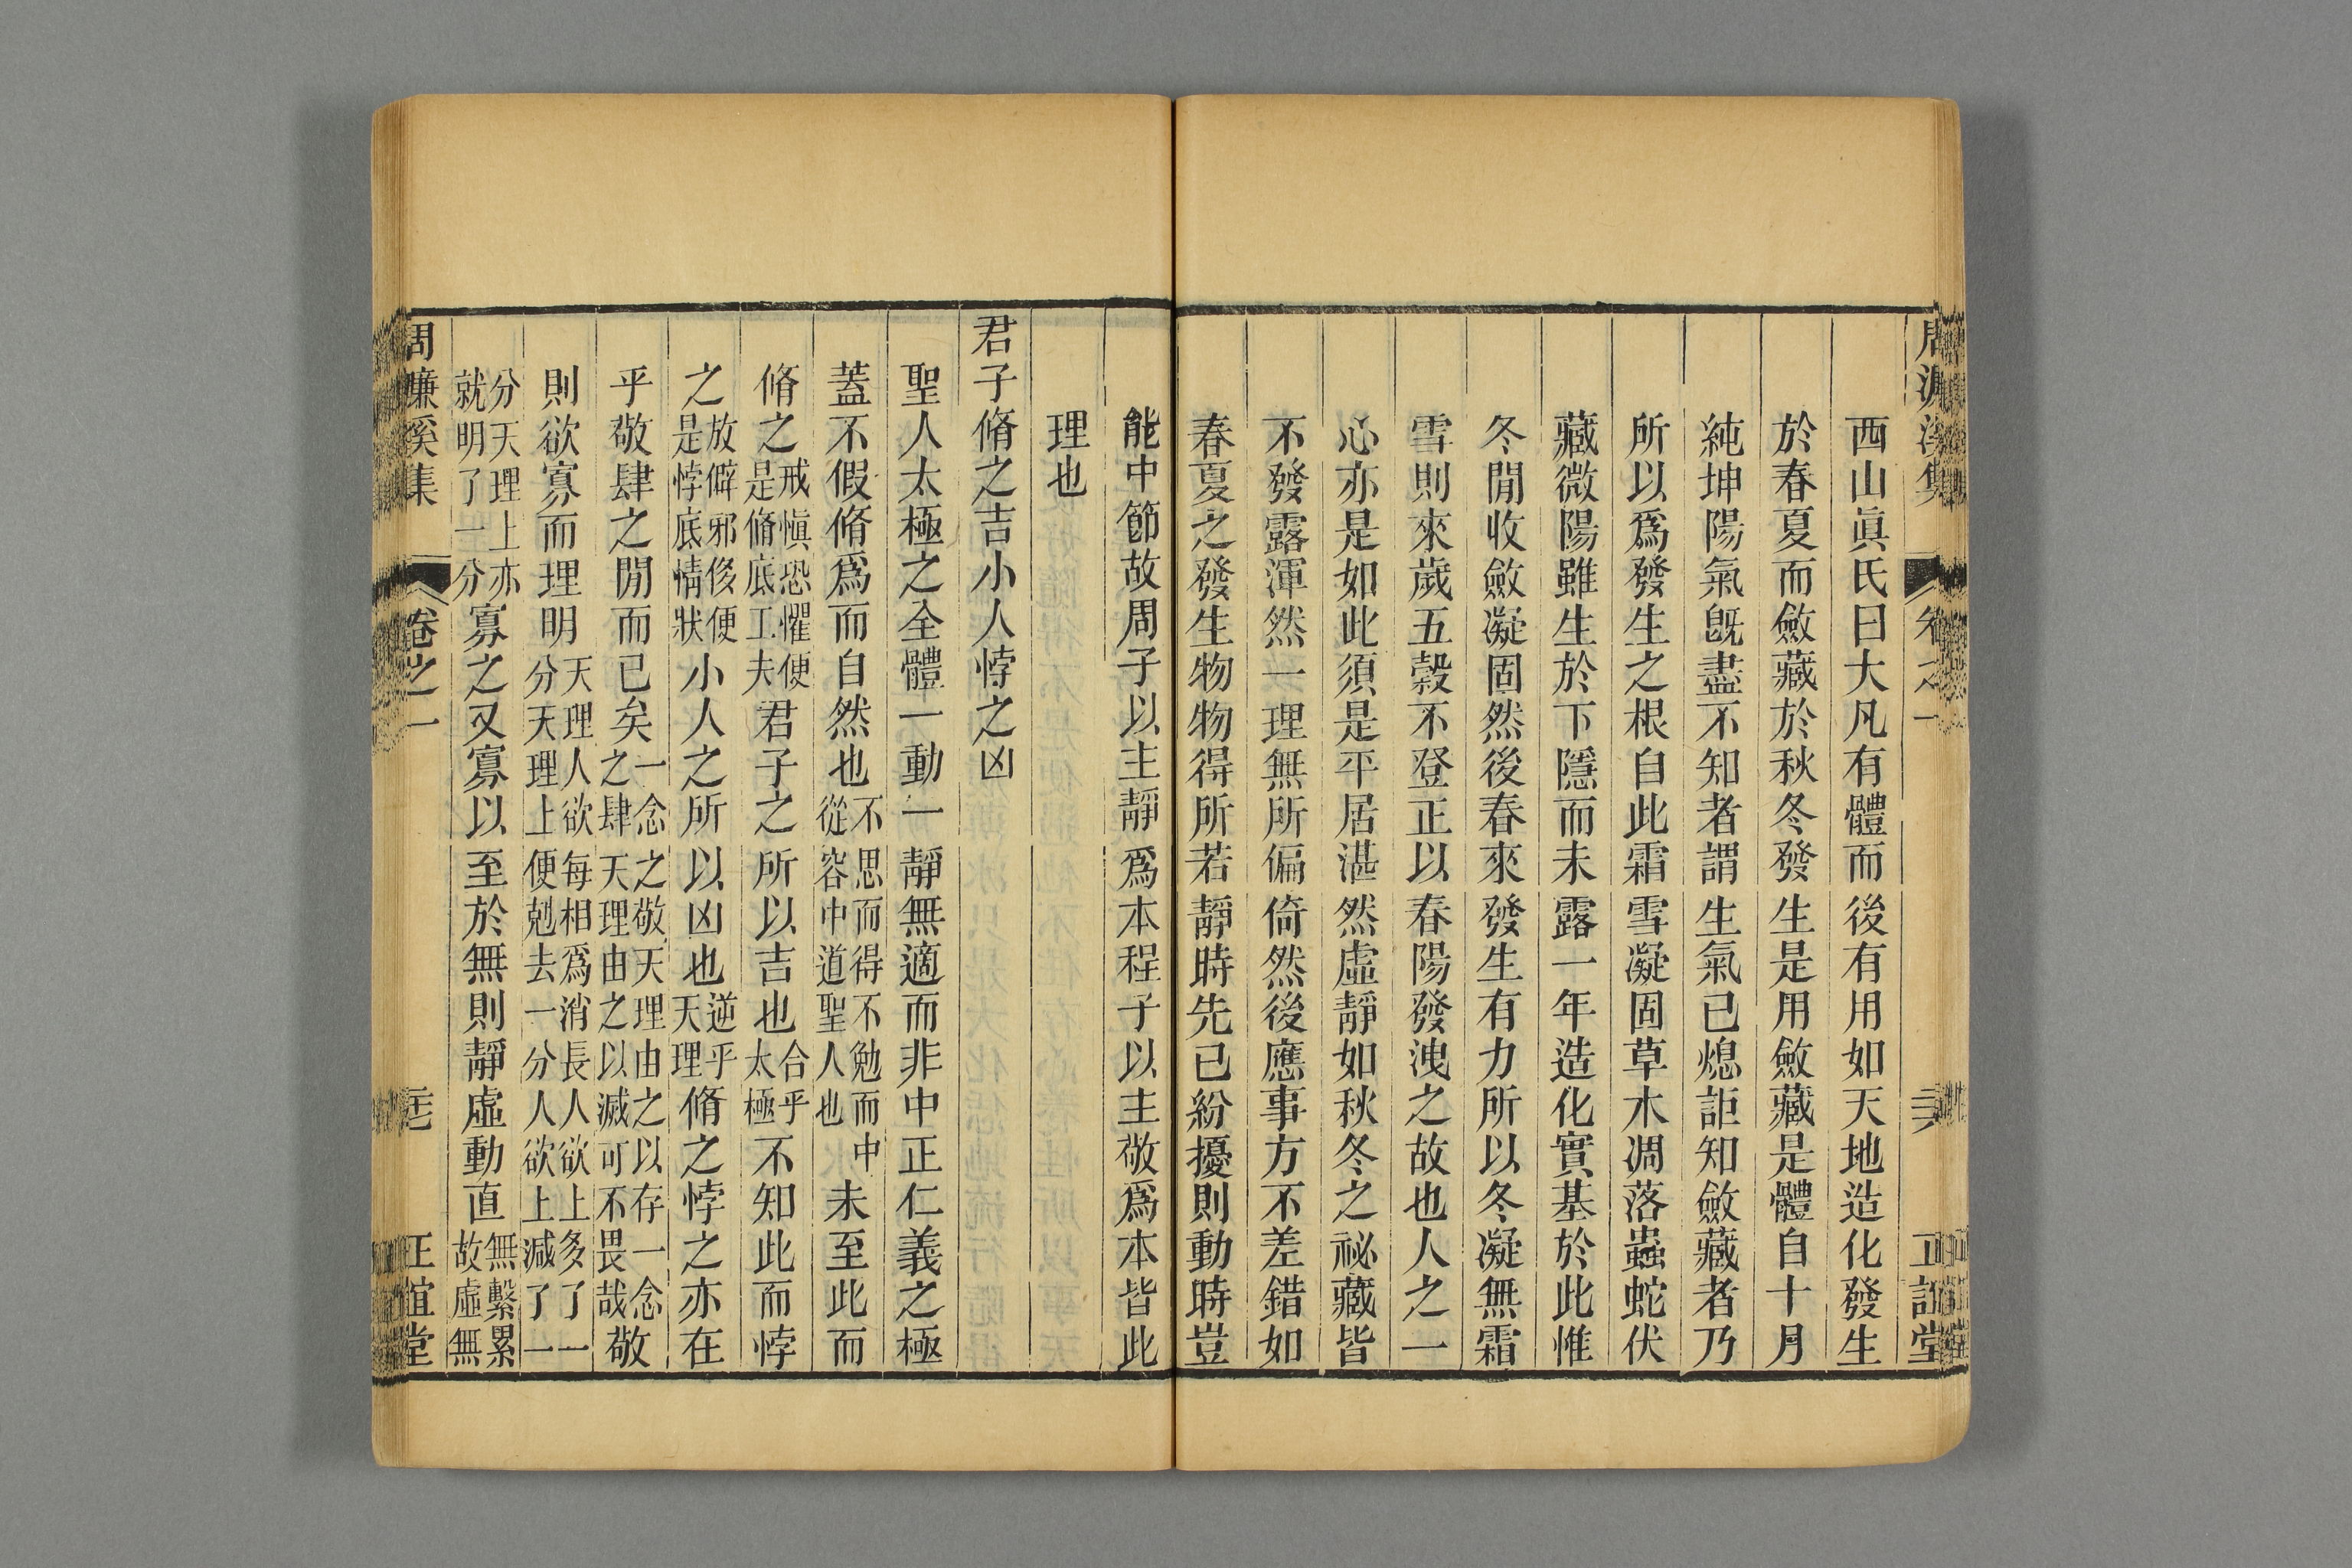 周濂溪集 卷之一 正誼堂
西山眞氏曰大凡有體而後有用如天地造化發生
於春夏而斂藏於秋冬發生是用斂藏是體自十月
純坤陽氣旣盡不知者謂生氣已熄詎知斂藏者乃
所以爲發生之根自此霜雪凝固草木凋落蟲蛇伏
藏微陽雖生於下隱而未露一年造化實基於此惟
冬閒收斂凝固然後春來發生有力所以冬凝無霜
雪則來歲五穀不登正以春陽發洩之故也人之一
心亦是如此須是平居湛然虛靜如秋冬之祕藏皆
不發露渾然一理無所偏倚然後應事方不差錯如
春夏之發生物物得所若靜時先已紛擾則動時豈
能中節故周子以主靜爲本程子以主敬爲本皆此
理也
君子脩之吉小人悖之凶
聖人太極之全體一動一靜無適而非中正仁義之極
蓋不假脩爲而自然也不思而得不勉而中從容中道聖人也未至此而
脩之戒愼恐懼便是脩底工夫君子之所以吉也合乎太極不知此而悖
之放僻邪侈便是悖底情狀小人之所以凶也逆乎天理脩之悖之亦在
乎敬肆之閒而已矣一念之敬天理由之以存一念之肆天理由之以滅可不畏哉敬
則欲寡而理明天理人欲每相爲消長人欲上多了一分天理上便剋去一分人欲上減了一
分天理上亦就明了一分寡之又寡以至於無則靜虛動直無繫累故虛無
周濂溪集 卷之一 正誼堂